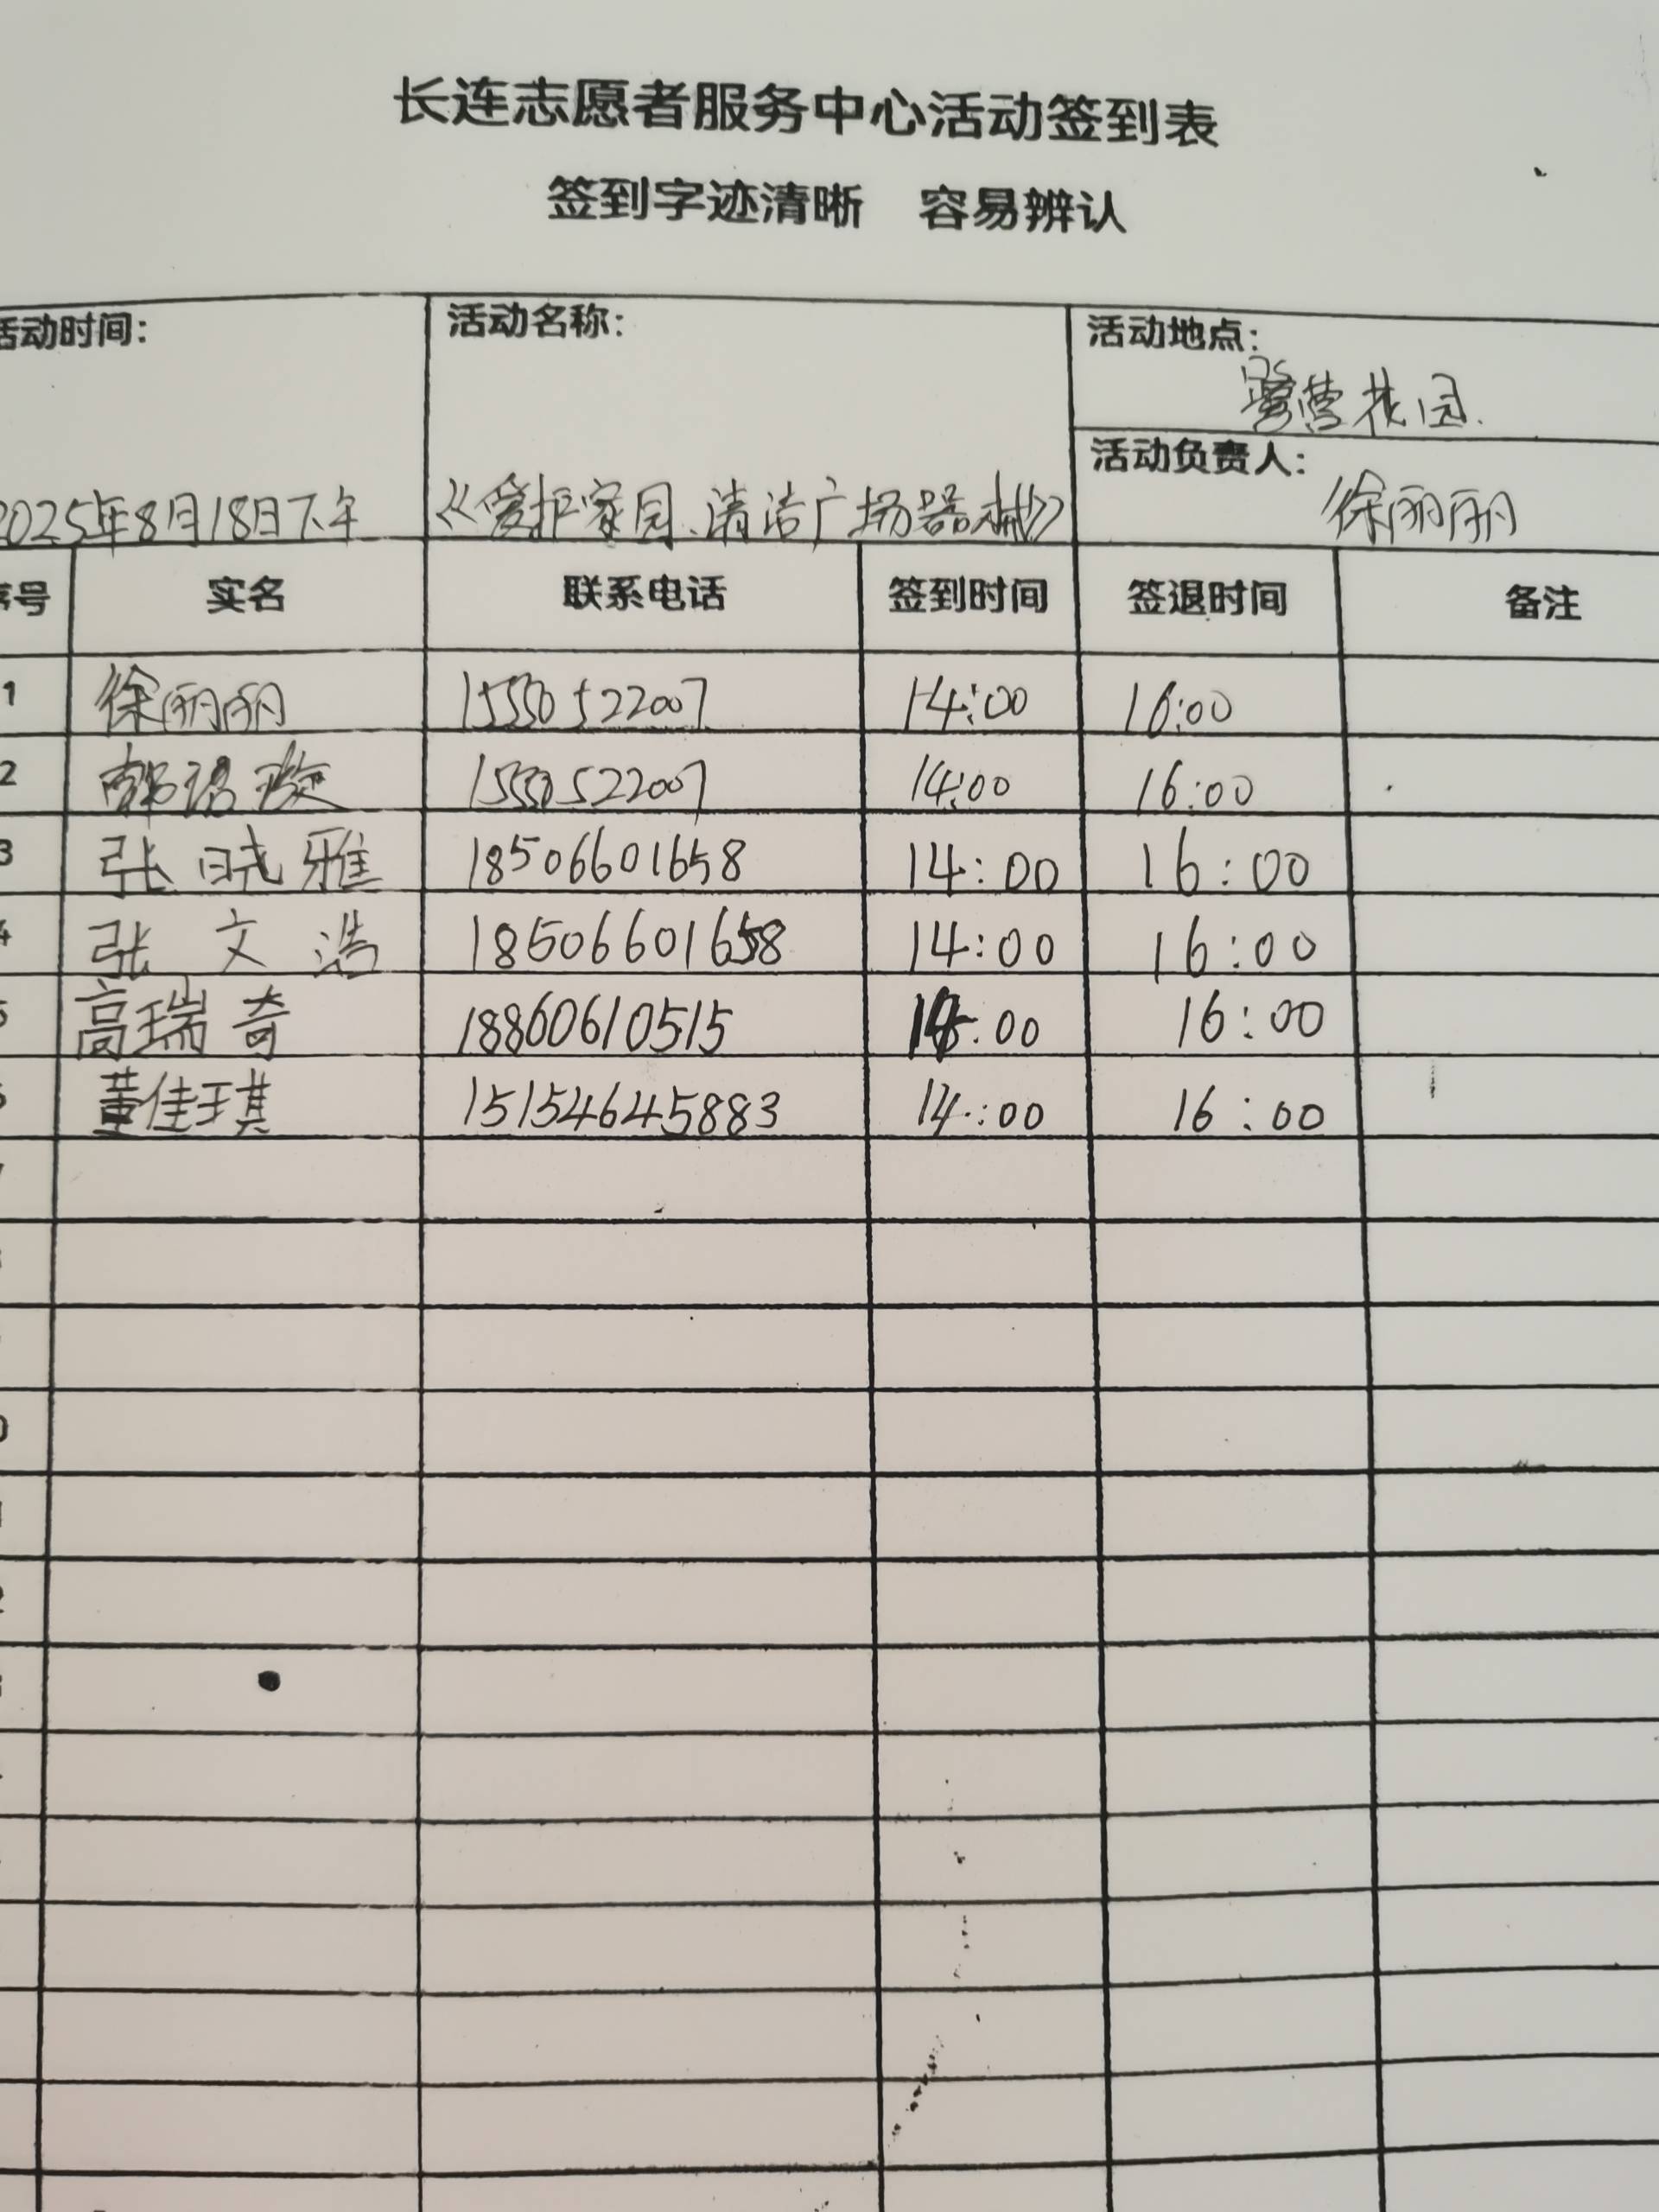 长连志愿者服务中心活动签到表
签到字迹清晰 容易辨认
活动时间: 活动名称: 活动地点:
营花园.
活动负责人:
2025年8月18日下午 《爱护家园、清洁广场器械》 徐丽丽
序号 实名 联系电话 签到时间 签退时间 备注
1 徐丽丽 15550522007 14:00 16:00
2 15550522007 14:00 16:00
3 张晓雅 18506601658 14:00 16:00
4 张文浩 18506601658 14:00 16:00
5 高瑞奇 18860610515 14:00 16:00
6 董佳琪 15154645883 14:00 16:00